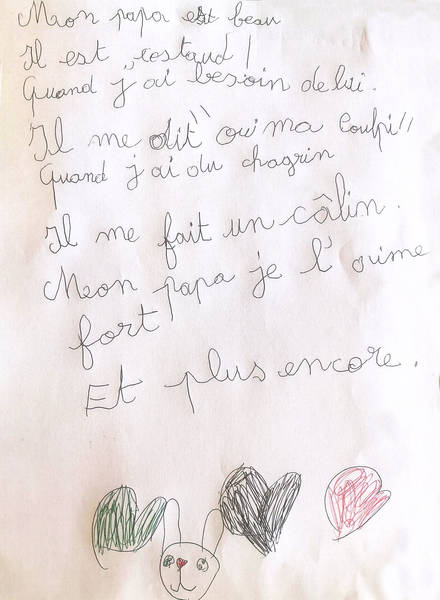 Mon papa est beau
Il est costaud !
Quand j'ai besoin de lui.
Il me dit "oui ma Loulpi"
Quand j'ai du chagrin
Il me fait un câlin.
Mon papa je l'aime
fort
Et plus encore.